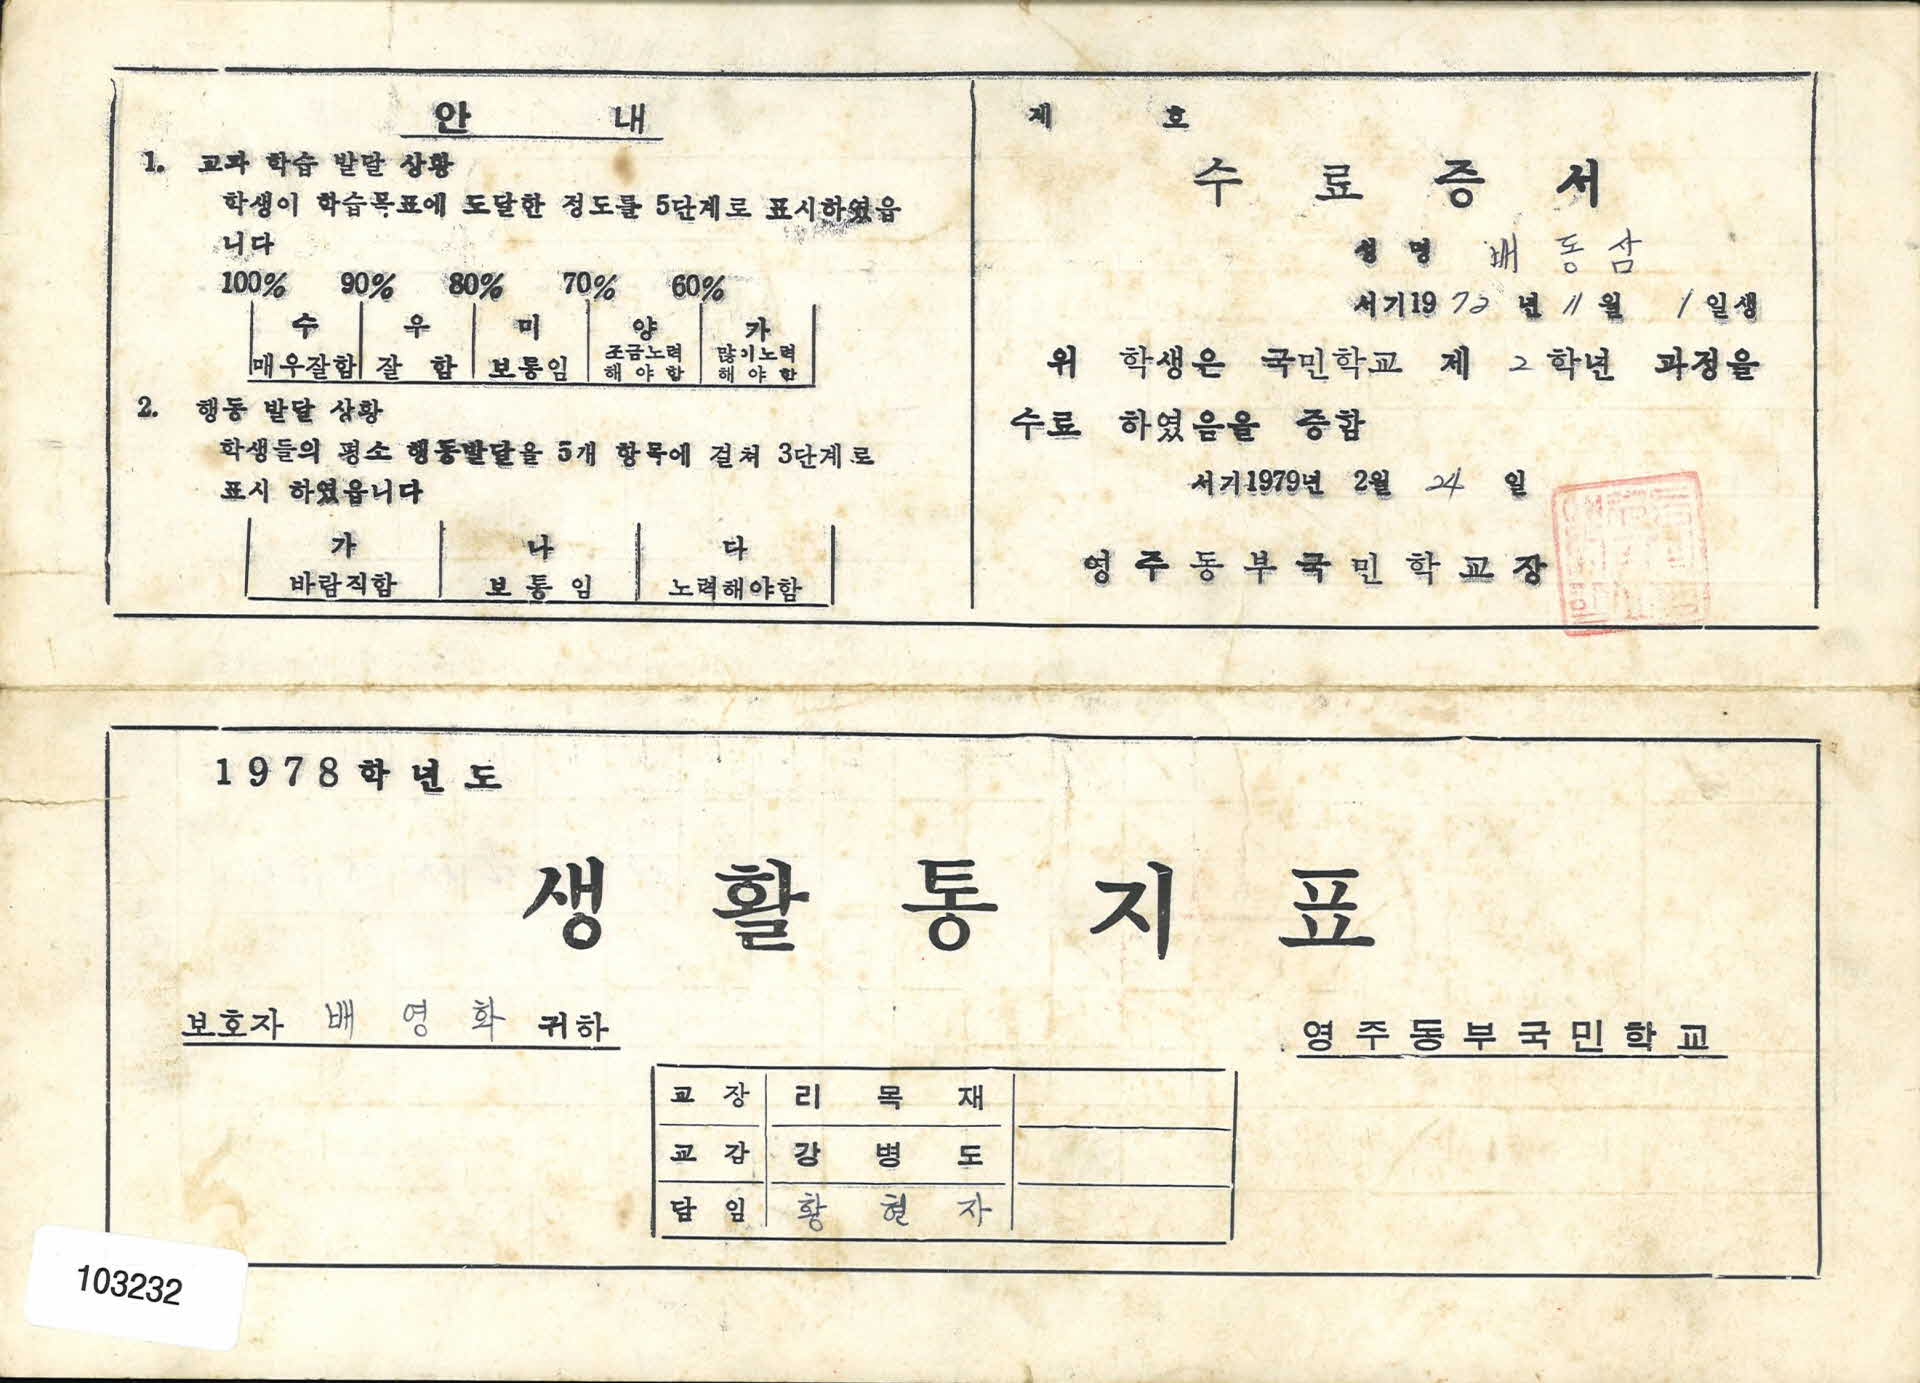 안 내
1. 교과 학습 발달 상황
학생이 학습목표에 도달한 정도를 5단계로 표시하였읍
니다
100% 90% 80% 70% 60%
수 우 미 양 가
매우잘함 잘 함 보통임 조금노력 해야함 많이노력 해야함
2. 행동 발달 상황
학생들의 평소 행동발달을 5개 항목에 걸쳐 3단계로
표시 하였읍니다
가 나 다
바람직함 보통임 노력해야함
제 호
수 료 증 서
성 명 배 동 삼
서기1972년 11월 1일생
위 학생은 국민학교 제 2학년 과정을
수료 하였음을 증함
서기1979년 2월 24일
영주동부국민학교장
1978학년도
생 활 통 지 표
보호자 배 영 화 귀하
영주동부국민학교
교 장 리 목 재
교 감 강 병 도
담 임 황 현 자
103232